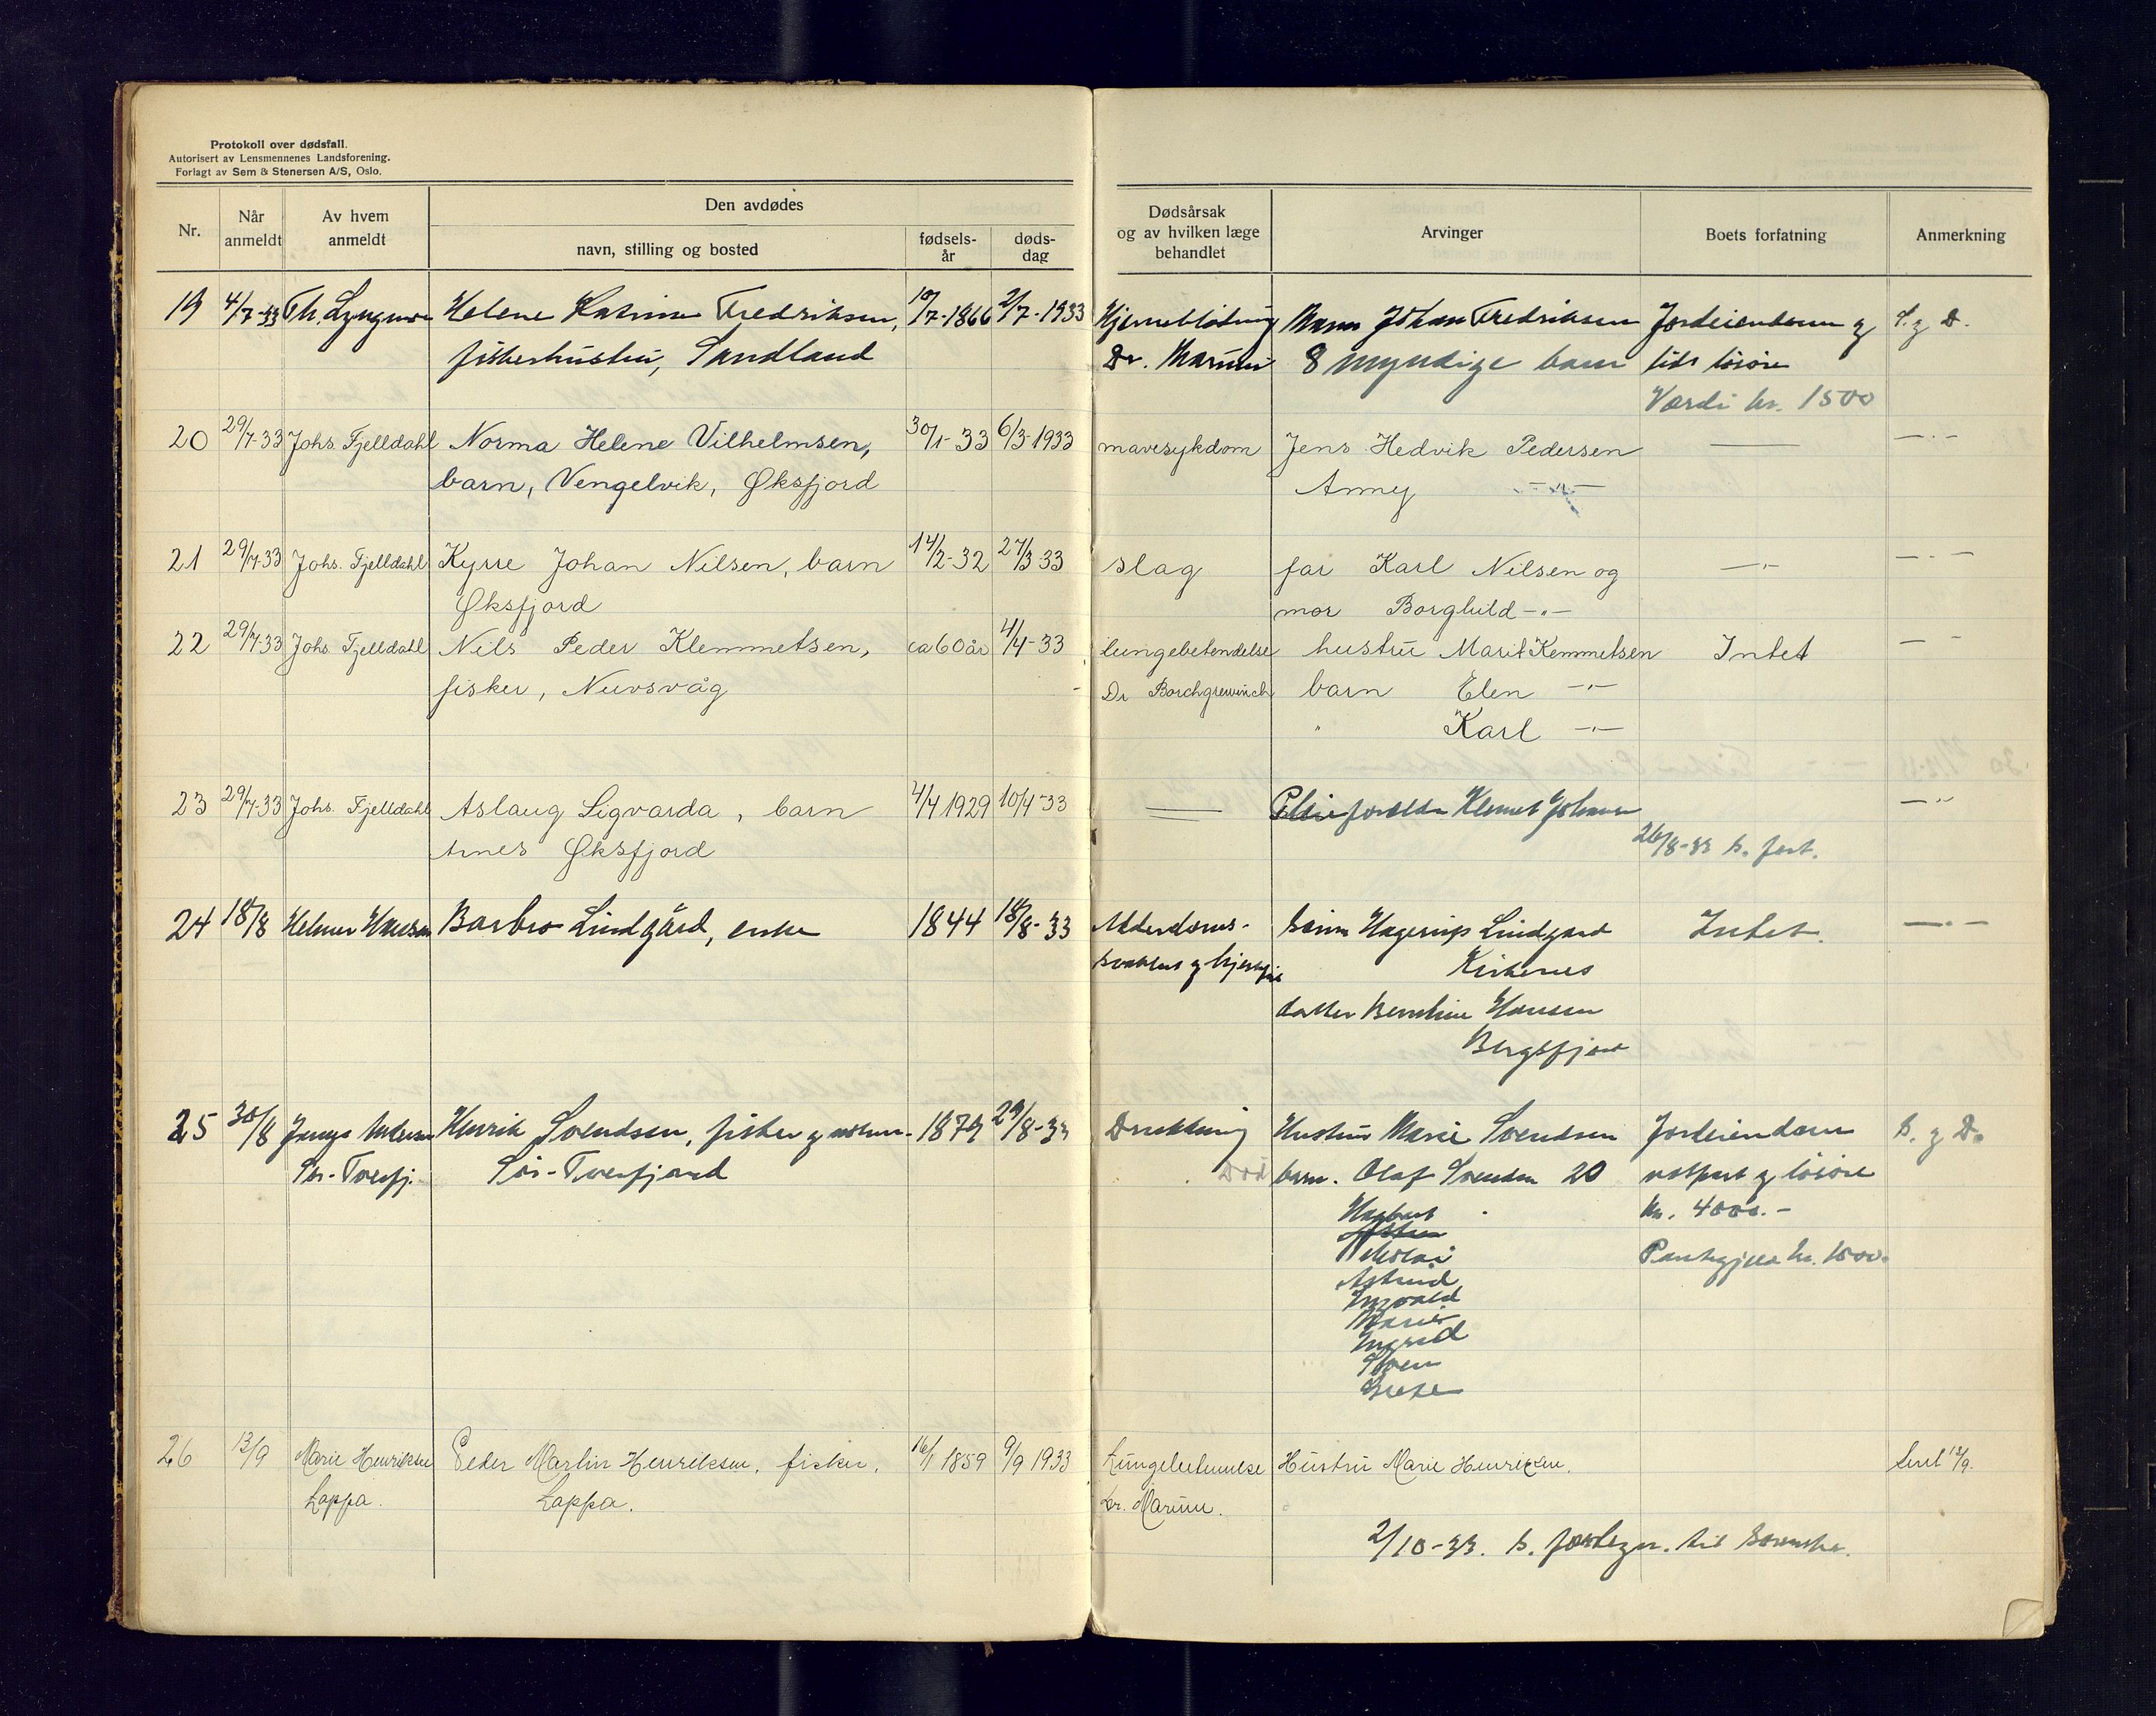 Protokoll over dødsfall.
Autorisert av Lensmennenes Landsforening.
Forlagt av Sem & Stenersen A/S, Oslo.
Nr. Når anmeldt Av hvem anmeldt Den avdødes Dødsårsak og av hvilken læge behandlet Arvinger Boets forfatning Anmerkning
navn, stilling og bosted fødsels-år døds-dag
19 4/7-33 Th. Helene Katrine Fredriksen, 10/7-1866 2/7-1933 Hjerneblødning Mann Johan Fredriksen Jordeiendom og S. g D.
fiskerhustru, Sandland Dr. 8 myndige barn lidt løsøre
Værdi kr. 1500
20 29/7-33 Johs. Fjelldahl Norma Helene Vilhelmsen, 30/1-33 6/3-1933 mavesykdom Jens Hedvik Pedersen — —"—
barn, Vengelvik, Øksfjord Anny —"—
21 29/7-33 Johs. Fjelldahl Kyrre Johan Nilsen, barn 14/2-32 27/3-33 slag far Karl Nilsen og —"— —"—
Øksfjord mor Borghild —"—
22 29/7-33 Johs. Fjelldahl Nils Peder Klemmetsen, ca 60 år 4/4-33 lungebetendelse hustru Marit Kemmetsen Intet — -
fisker, Nuvsvåg Dr Borchgrewinch barn Elen —"—
" Karl —"—
23 29/7-33 Johs. Fjelldahl Aslaug Sigvarda, barn 4/4 1929 10/4-33 — Pleieforeldre Klemet Johansen —"—
Arnes Øksfjord 26/8-33 s. fort.
24 18/8 Helmer Hansen Barbro Lindgård, enke 1844 18/8-33 Alderdoms- sønn Hagerup Lindgård Intet. —"—
svakhet og hjertefeil Kirkenes
datter Hansen
Bergsfjord
25 30/8 Henrik Svendsen, fisker g 1879 29/8-33 Drukning Hustru Marie Svendsen Jordeiendom S. g D.
Sør-Tverfj. Sør-Tverfjord barn. Olaf Svendsen 20 løsøre
Hagbart kr. 4000.-
Nikolai Pantegjeld kr.
Astrid
Ingvald
Marie
Ingrid
Sven
26 13/9 Marie Henriksen Peder Martin Henriksen, fisker, 16/1 1859 9/9 1933 Lungebetennelse Hustru Marie Henriksen. Sent 13/9.
Loppa. Loppa. Dr.
2/10-33. S. til